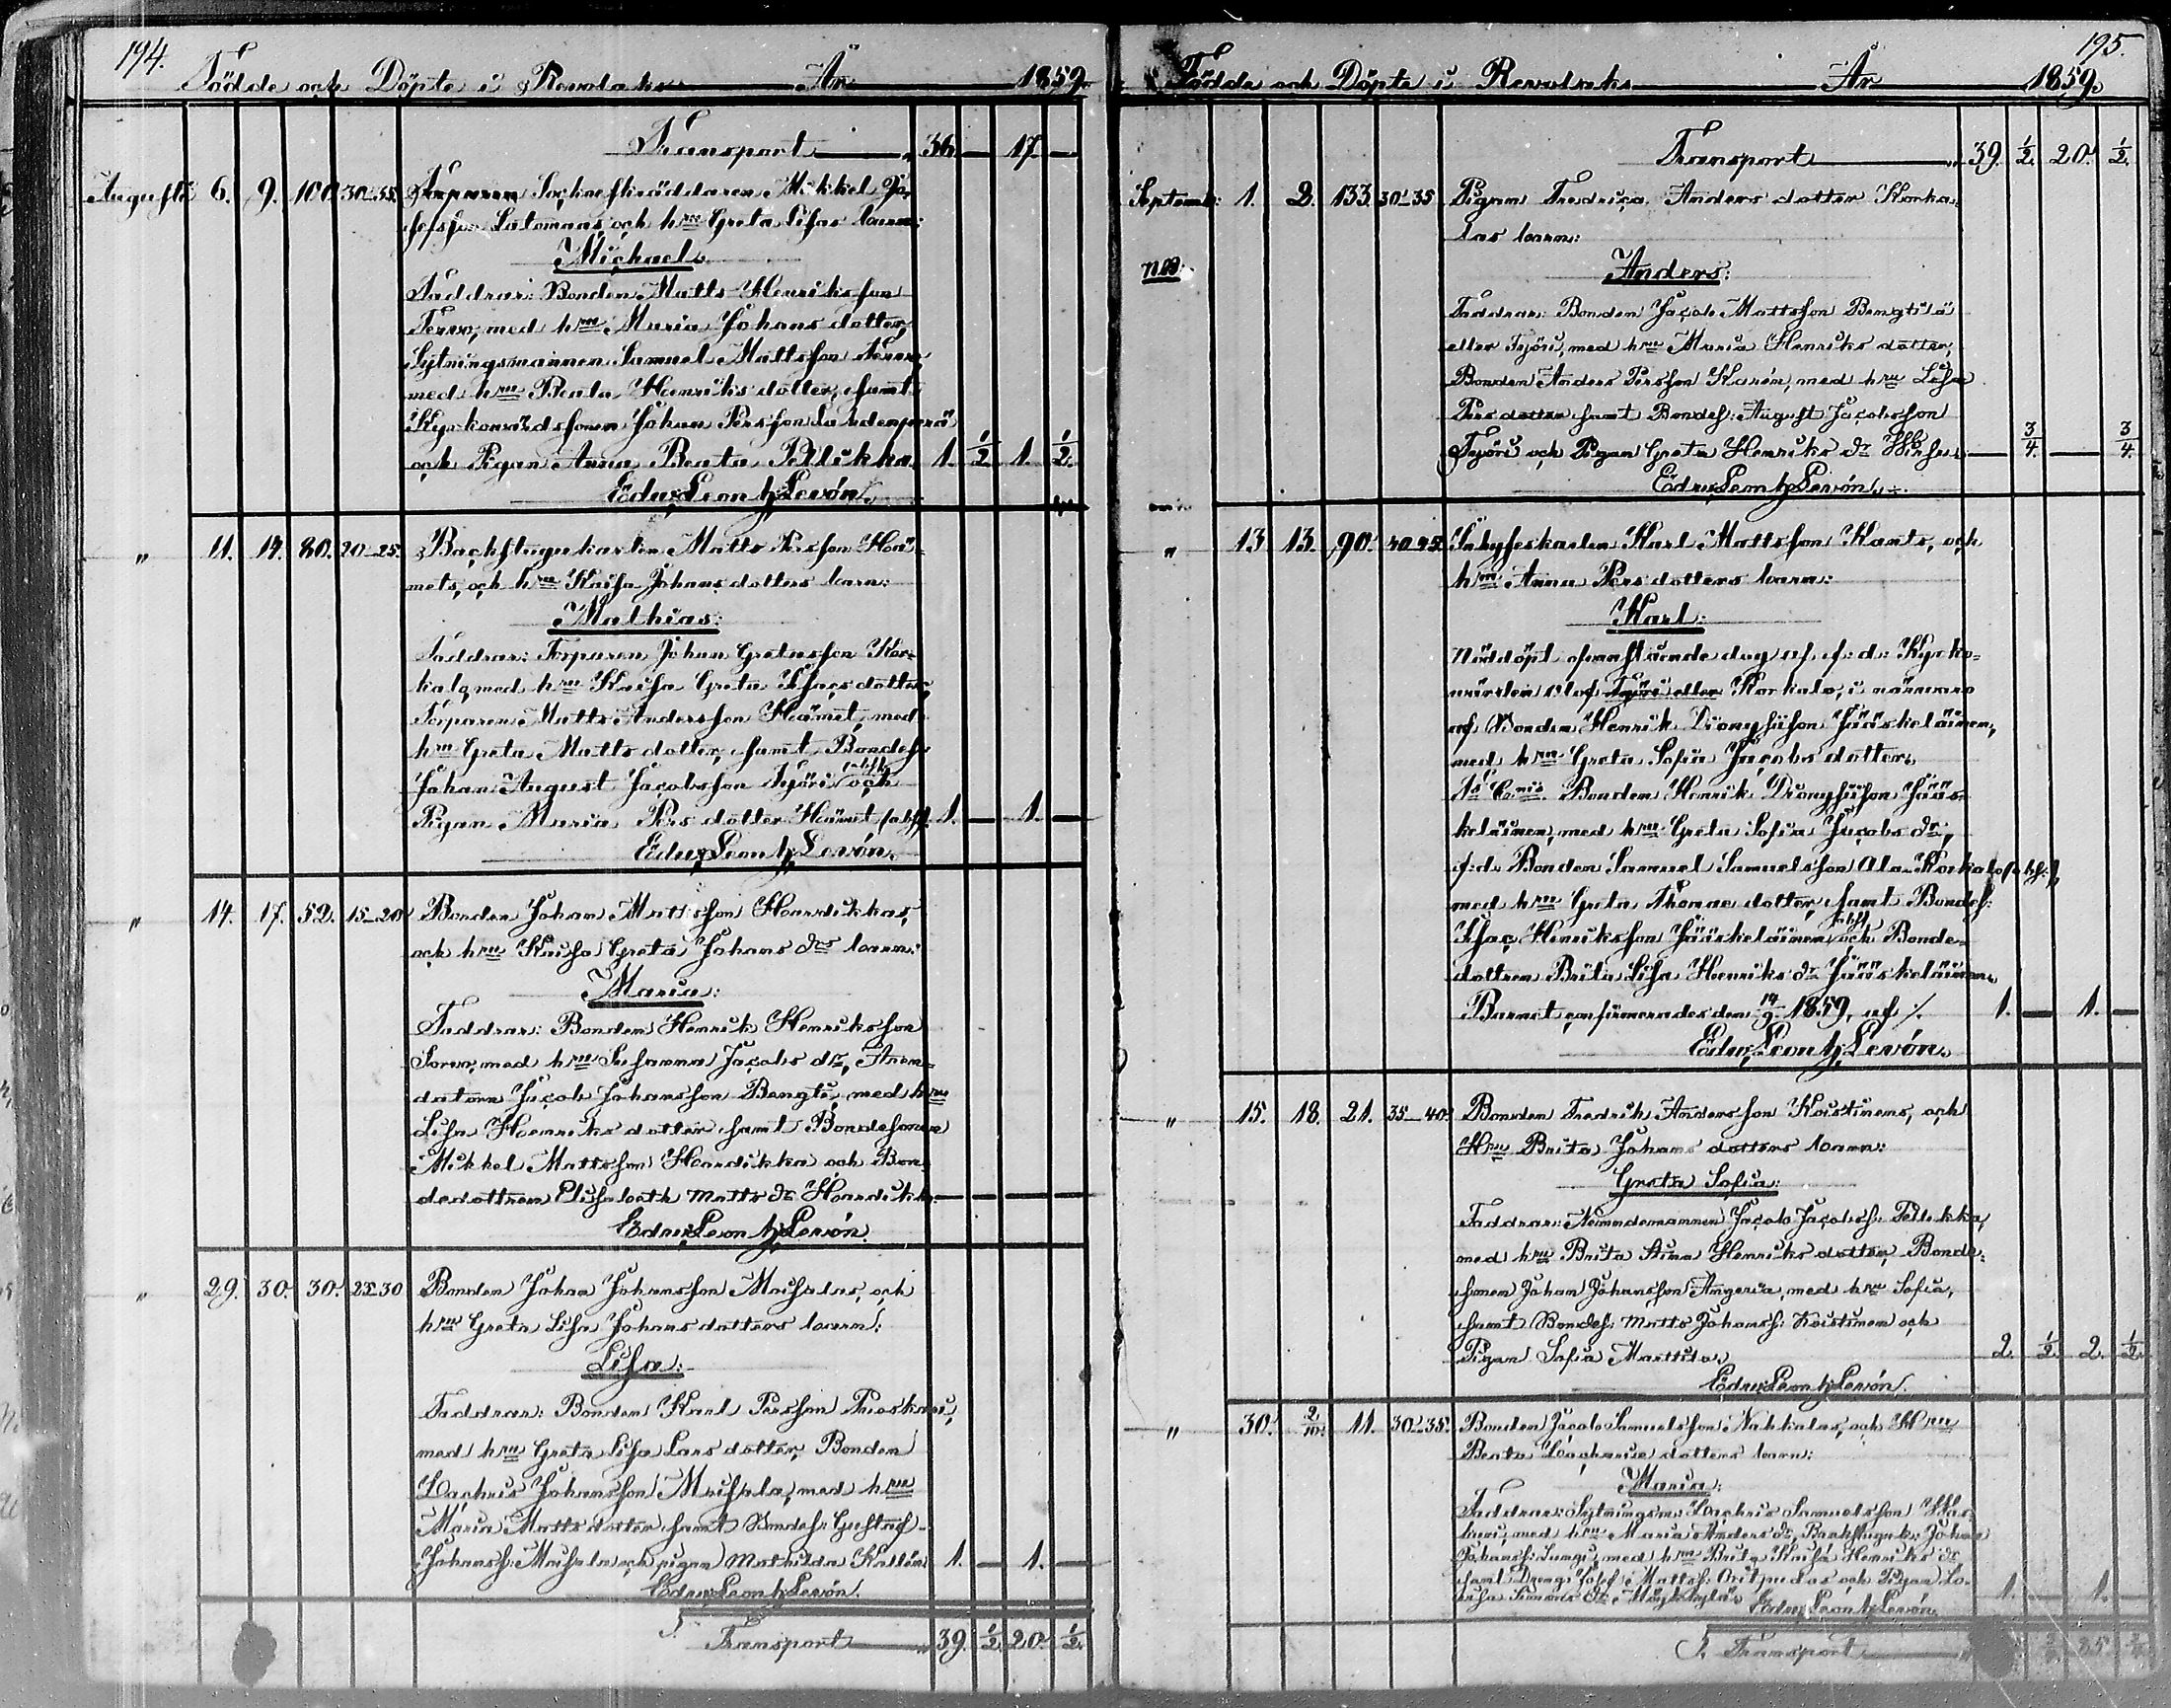 194.
Födde och Döpte i Revolaks År 1859.
Transport 36. — 17. —
Augusti 6. 9. 100. 30-35. Sockneskräddaren Mikkel Jo-
sefsson Salomaas, och hru Greta Lisas barn:
Michael.
Faddrar: Bonden Matts Henriksson
med hru Maria Johans dotter,
Sytningsmannen Samuel Mattsson
med hru Beata Henriks dotter, samt
Kyrkovärdssonen Johan Persson Lahdenperä
och Pigan Anna Beata Pellikka. 1. ½ 1. ½.
Edv: Leonh: Levón.
" 11. 14. 80. 20-25. Backstugukarlen Matts Persson Heä-
mets, och hru Kaisa Johans dotters barn:
Mathias:
Faddrar: Torparen Johan Gretasson Kor-
kala, med hru Kaisa Greta Isacs dotter,
Torparen Matts Andersson Heämet, med
hru Greta Matts dotter, samt Bondes:
Johan August Jacobsson Työri (abs) och
Pigan Maria Pers dotter Heämet (abs). 1. — 1. —
Edv: Leonh: Levón.
" 14. 17. 52. 15-20. Bonden Johan Mattsson Hoardikkas,
och hru Kaisa Greta Johans drs barn:
Maria:
Faddrar: Bonden Henrik Henriksson
med hru Susanna Jacobs dr, Aren-
datorn Jacob Johansson Bengts, med hru
Lisa Henriks dotter samt Bondesonen
Mikkel Mattsson Hoardikka och Bon-
dedottren Elisabeth Matts dr Hoardikka. — — — —
Edv: Leonh: Levón.
" 29. 30. 30. 25-30 Bonden Johan Johansson Maihalas, och
hru Greta Lisa Johans dotters barn:
Lisa:
Faddrar: Bonden Karl Persson Prieskari,
med hru Greta Lisa Lars dotter, Bonden
Zachris Johansson med hru
Maria Matts dotter samt Bondes: Gustaf
Johanss: och pigan Mathilda Kallén 1. — 1. —
Edv: Leonh: Levón.
Transport 39. ½. 20. ½.
195.
Födde och Döpte i Revolaks År 1859.
Transport 39. ½. 20. ½.
Septemb: 1. 2. 133. 30-35 Pigan Fredrica Anders dotter Korka-
las barn:
Anders:
Faddrar: Bonden Jacob Mattsson Bengtilä
eller Työri, med hru Maria Henriks dotter,
Bonden Anders Persson Karén, med hru Lisa
Pers dotter samt Bondes: August Jacobsson
Työri och Pigan Greta Henriks dr — ¾. — ¾.
Edv: Leonh: Levón.
" 13. 13. 90. 40-45. Inhyseskarlen Karl Mattsson Kants, och
hru Anna Pers dotters barn:
Karl:
Nöddöpt ofvanstående dag af f: d: Kyrko-
värden Olof Työri eller Korkala, i närvaro
af Bonden Henrik Dionysiison Jääskeläinen,
med hru Greta Sofia Jacobs dotter.
Bonden Henrik Dionysiison Jääs-
keläinen, med hru Greta Sofia Jacobs dr,
f: d: Bonden Samuel Samuelsson Ala-Korkala (abs:),
med hru Greta Thomae dotter, samt Bondes:
Isac Henriksson Jääskeläinen (abs) och Bonde-
dottren Brita Lisa Henriks dr Jääskeläinen.
Barnet confirmerades den 14/9 1859, af ·/. 1. — 1. —
Edv: Leonh: Levón.
" 15. 18. 21. 35-40. Bonden Fredrik Andersson Koistinens, och
Hru Brita Johans dotters barn:
Greta Sofia:
Faddrar: Nämndemannen Jacob Jacobss: Pellikka,
med hru Brita Stina Henriks dotter, Bonde-
sonen Johan Johansson Angeria, med hru Sofia,
samt Bondes: Matts Johanss: Koistinen och
Pigan Sofia Marttila. 2. ½. 2. ½.
Edv: Leonh: Levón.
" 30. 2/10. 11. 30-35. Bonden Jacob Samuelsson Nahkalas, och Hru
Beata Zachariae dotters barn:
Maria:
Faddrar: Sytningsm: Zachris Samuelsson
med hru Maria Anders dr, Backstuguk: Johan
Johanss: Lungi, med hru Brita Kaisa Henriks dr
samt Dreng: Josef Mattss: och Pigan Lo-
visa 1. — 1. —
Edv: Leonh: Levón.
Transport